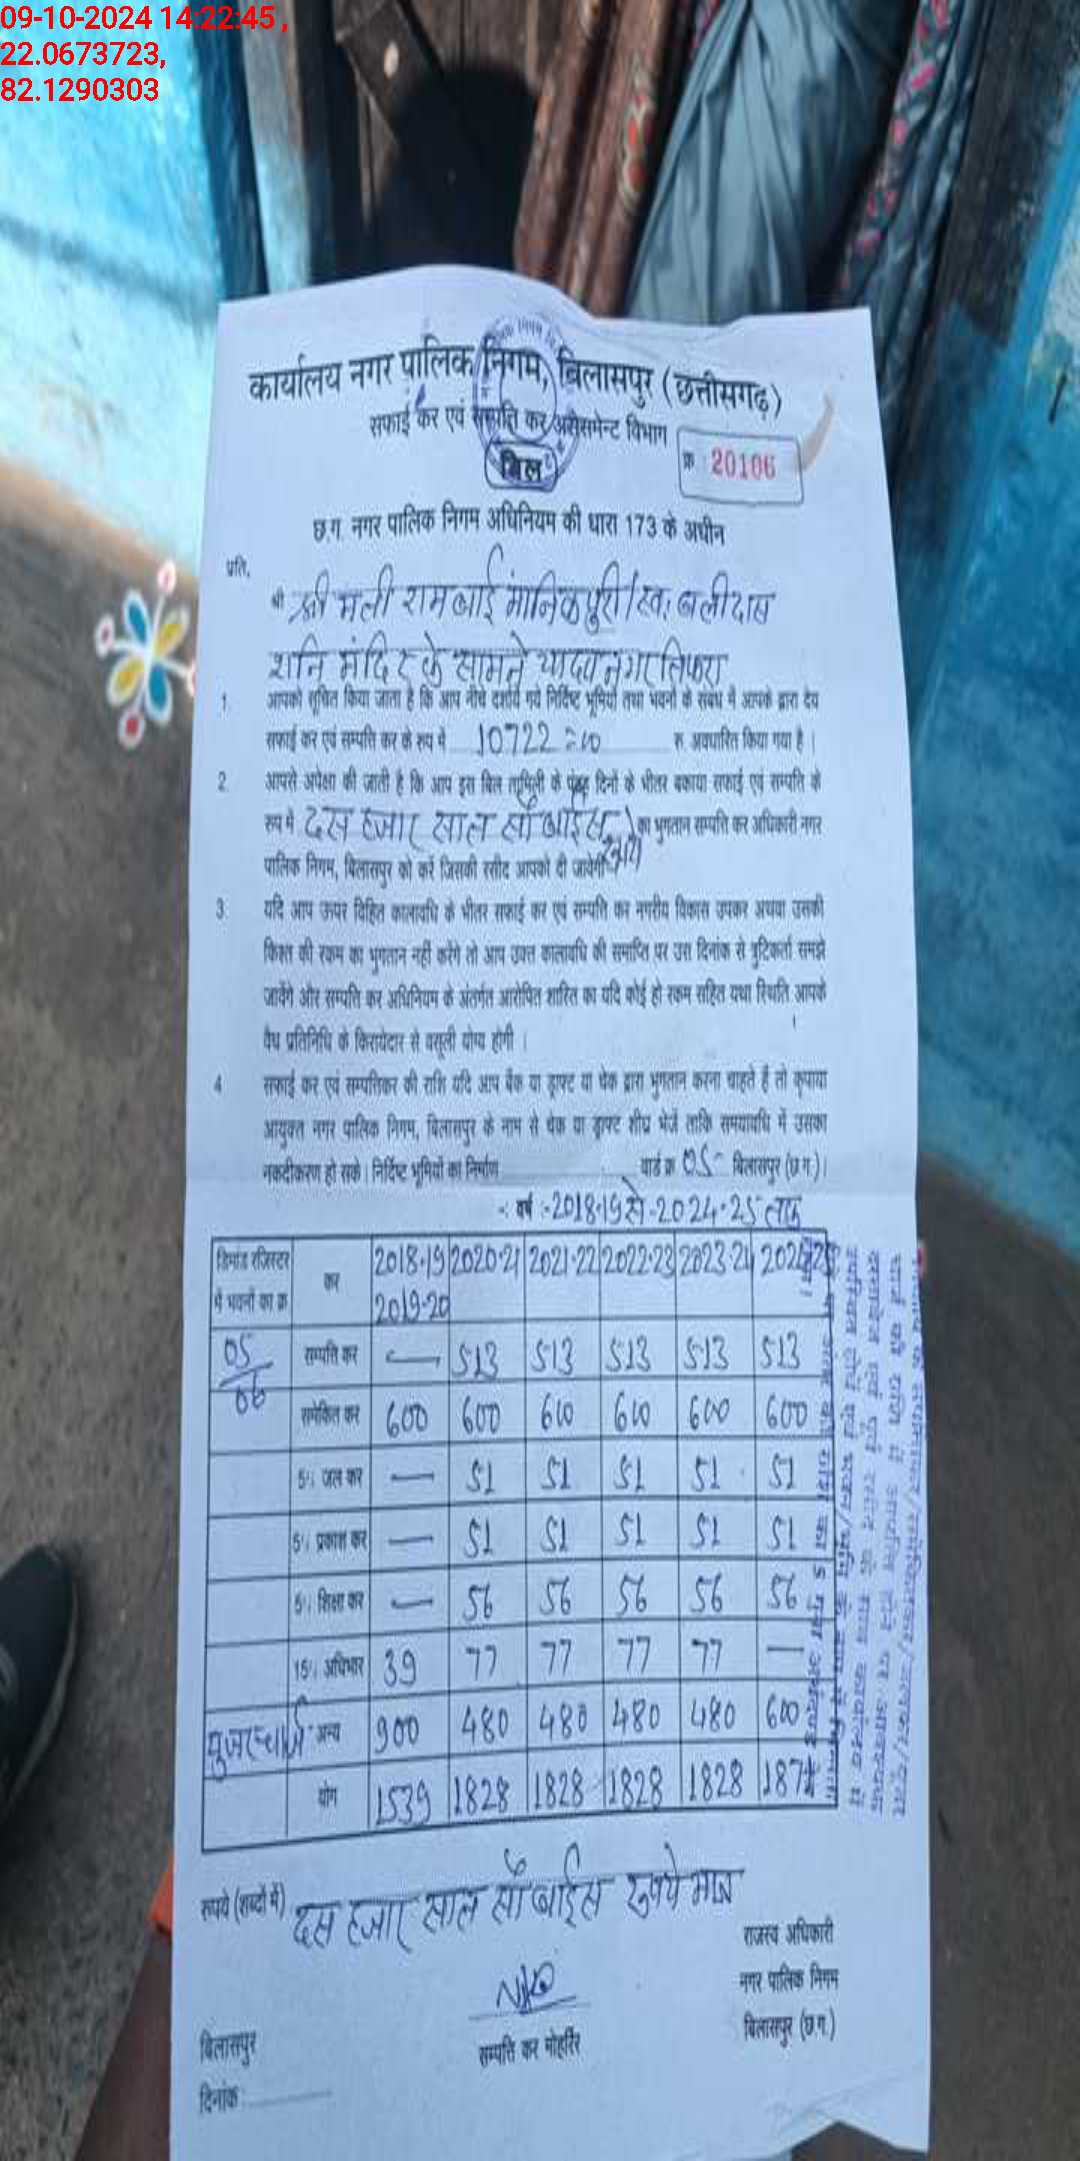 09-10-2024 14:22:45 ,
22.0673723,
82.1290303
कार्यालय नगर पालिक निगम, बिलासपुर (छत्तीसगढ़)
सफाई कर एवं सम्पत्ति कर असेसमेन्ट विभाग
बिल
क्र 20106
छ.ग. नगर पालिक निगम अधिनियम की धारा 173 के अधीन
प्रति,
श्री श्री मती रामबाई मानिकपुरी/स्व: बलीदास
शनि मंदिर के सामने यादव नगर तिफरा
1. आपको सूचित किया जाता है कि आप नीचे दर्शाये गये निर्दिष्ट भूमियों तथा भवनों के संबंध में आपके द्वारा देय
सफाई कर एवं सम्पत्ति कर के रूप में 10722=00 रु. अवधारित किया गया है।
2. आपसे अपेक्षा की जाती है कि आप इस बिल तामिली के पंद्रह दिनों के भीतर बकाया सफाई एवं सम्पत्ति के
रूप में दस हजार सात सौ बाईस रूपये का भुगतान सम्पत्ति कर अधिकारी नगर
पालिक निगम, बिलासपुर को करें जिसकी रसीद आपको दी जावेगी
3. यदि आप ऊपर विहित कालावधि के भीतर सफाई कर एवं सम्पत्ति कर नगरीय विकास उपकर अथवा उसकी
किश्त की रकम का भुगतान नहीं करेंगे तो आप उक्त कालावधि की समाप्ति पर उस दिनांक से त्रुटिकर्ता समझे
जावेंगे और सम्पत्ति कर अधिनियम के अंतर्गत आरोपित शास्ति का यदि कोई हो रकम सहित यथा स्थिति आपके
वैध प्रतिनिधि के किरायेदार से वसूली योग्य होगी।
4. सफाई कर एवं सम्पत्तिकर की राशि यदि आप बैंक या ड्राफ्ट या चेक द्वारा भुगतान करना चाहते हैं तो कृपाया
आयुक्त नगर पालिक निगम, बिलासपुर के नाम से चेक या ड्राफ्ट शीघ्र भेजें ताकि समयावधि में उसका
नकदीकरण हो सके। निर्दिष्ट भूमियों का निर्माण वार्ड क्र 05 बिलासपुर (छ.ग.)।
-: वर्ष :-2018-19 से-2024-25 तक
डिमांड रजिस्टर में भवनों का क्र कर 2018-19 2019-20 2020-21 2021-22 2022-23 2023-24 2024-25
05/06 सम्पत्ति कर — 513 513 513 513 513
समेकित कर 600 600 600 600 600 600
5% जल कर — 51 51 51 51 51
5% प्रकाश कर — 51 51 51 51 51
5% शिक्षा कर — 56 56 56 56 56
15% अधिभार 39 77 77 77 77 —
यूजर चार्ज अन्य 900 480 480 480 480 600
योग 1539 1828 1828 1828 1828 1871
रूपये (शब्दों में) दस हजार सात सौ बाईस रूपये मात्र
राजस्व अधिकारी
नगर पालिक निगम
बिलासपुर (छ.ग.)
सम्पत्ति कर मोहर्रिर
बिलासपुर
दिनांक